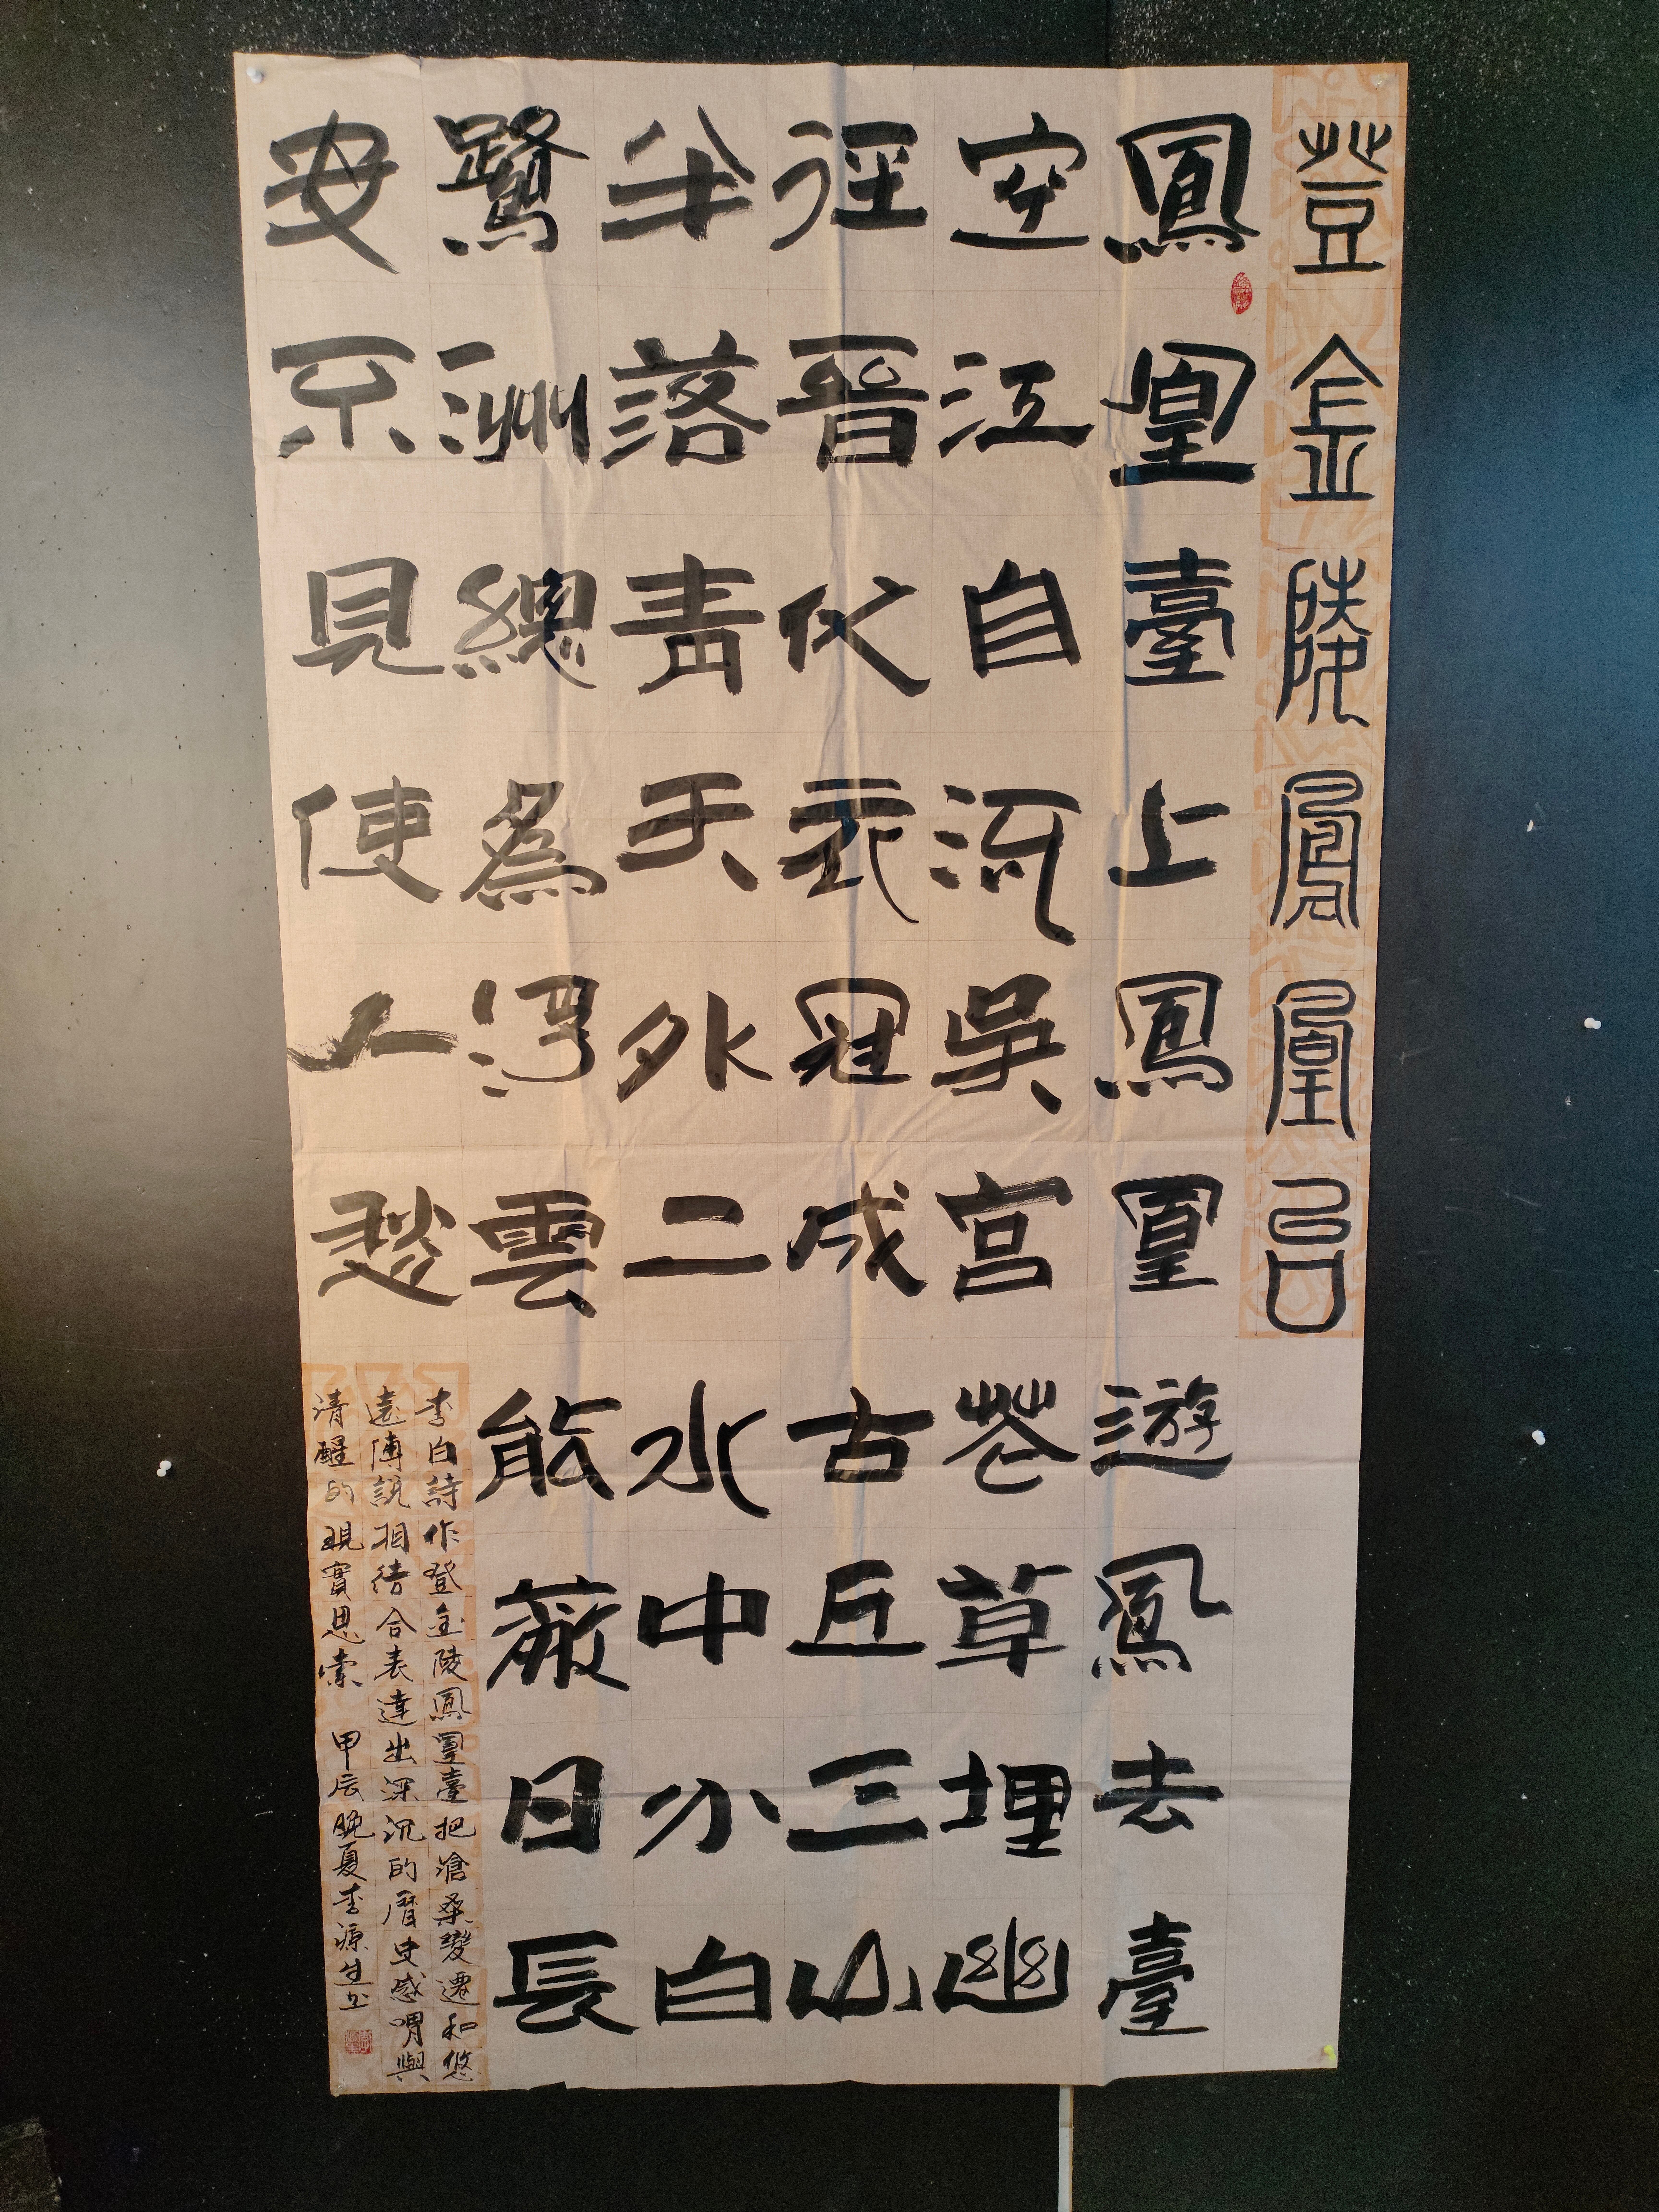 登金陵鳳凰台
鳳凰臺上鳳凰遊鳳去臺
空江自流吳宮花草埋幽
徑晉代衣冠成古丘三山
半落青天外二水中分白
鷺洲總爲浮雲能蔽日長
安不見使人愁
李白詩作登金陵鳳凰臺把滄桑變遷和悠
遠傳說相結合表達出深沉的曆史感喟與
清醒的現實思索 甲辰晚夏李源生书